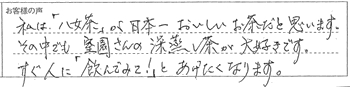 お客様の声
私は「八女茶」が日本一おいしいお茶だと思います。
その中でも室園さんの深蒸し茶が大好きです。
すぐ人に「飲んでみて!」とあげたくなります。